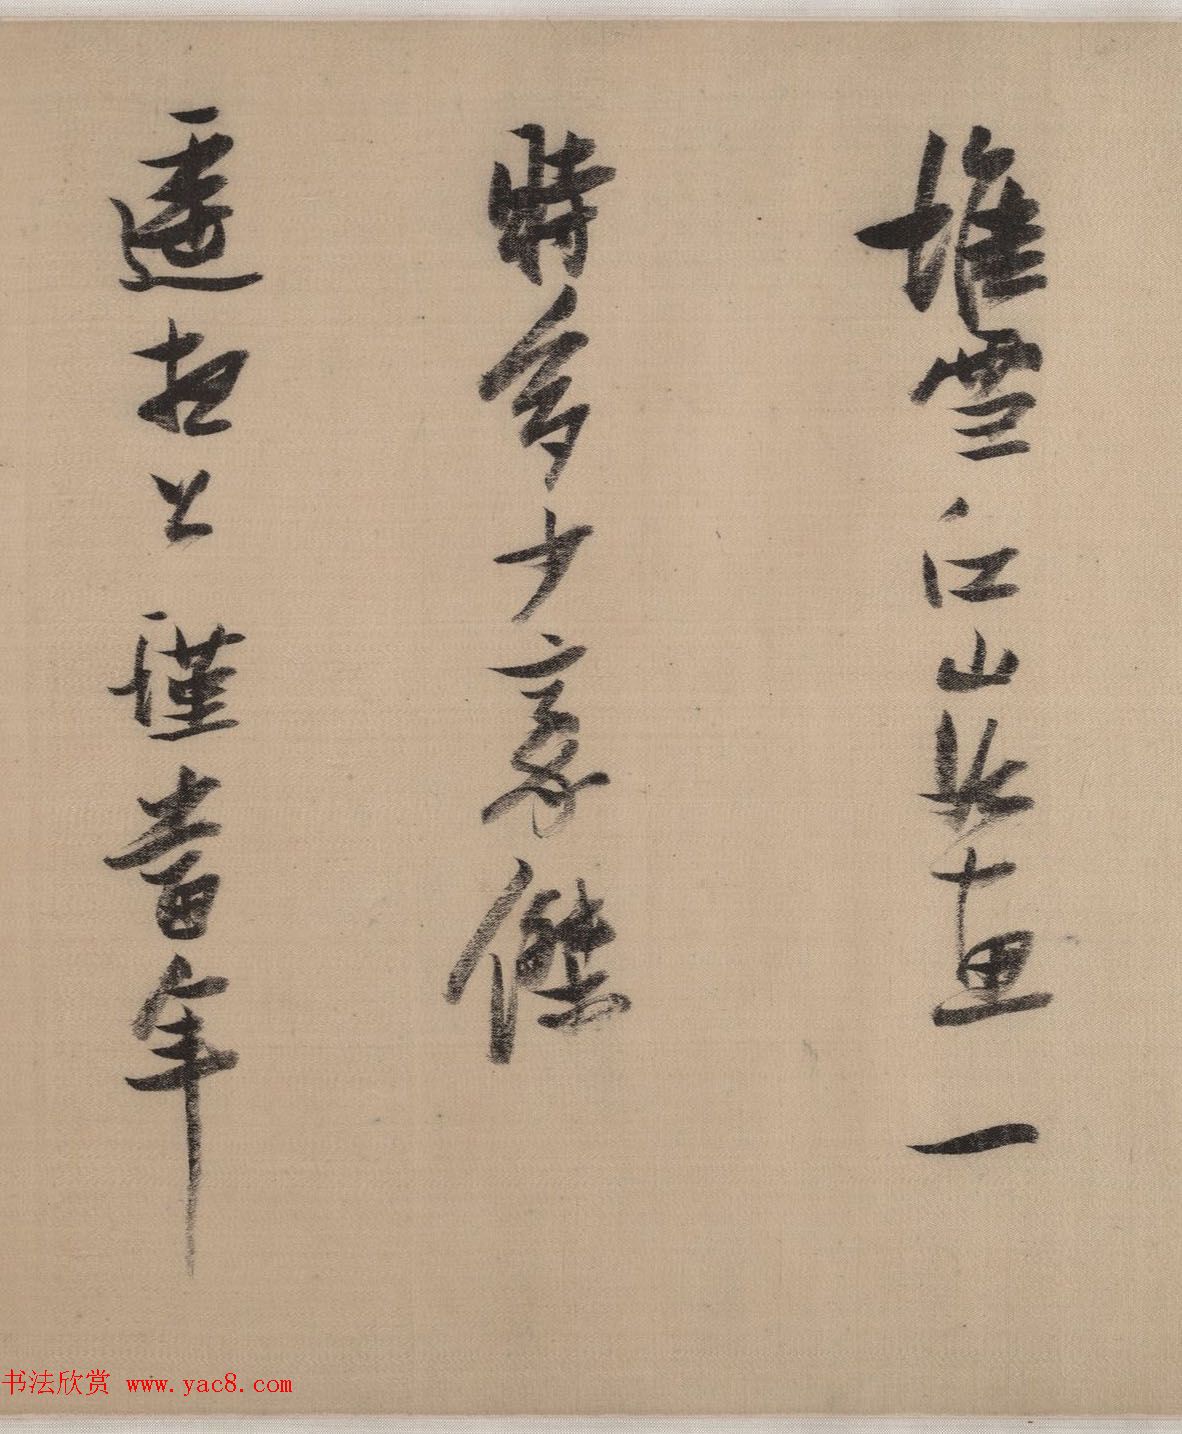 堆雪江山如畫一
時多少豪傑
遙想公瑾當年
书法欣赏 www.yac8.com